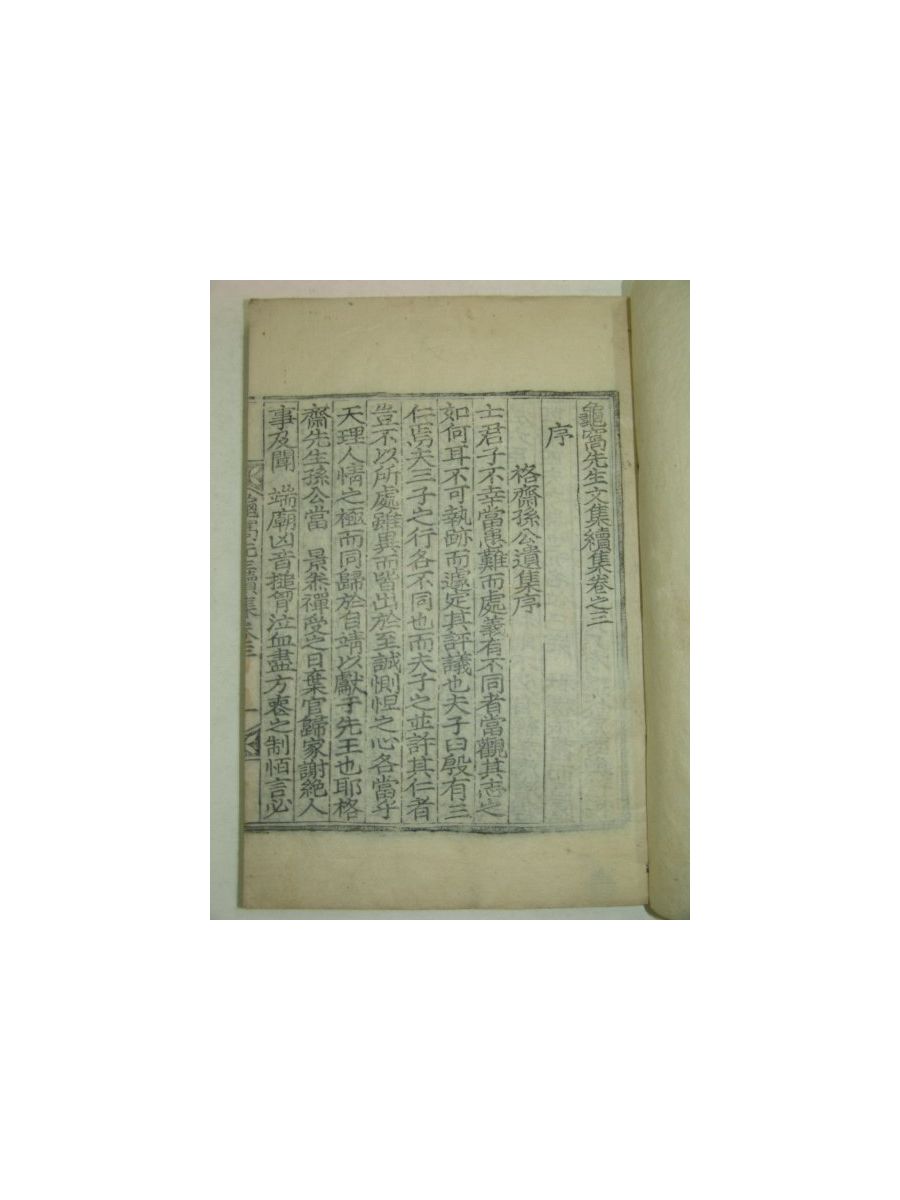 龜窩先生文集續集卷之三
序
格齋孫公遺集序
士君子不幸當患難而處義有不同者當觀其志之
如何耳不可執跡而遽定其評議也夫子曰殷有三
仁焉夫三子之行各不同也而夫子之並許其仁者
豈不以所處雖異而皆出於至誠惻怛之心各當乎
天理人情之極而同歸於自靖以獻于先王也耶格
齋先生孫公當 景泰禪受之日棄官歸家謝絶人
事及聞 端廟凶音搥胷泣血盡方喪之制恒言必
龜窩先生續集卷三 一